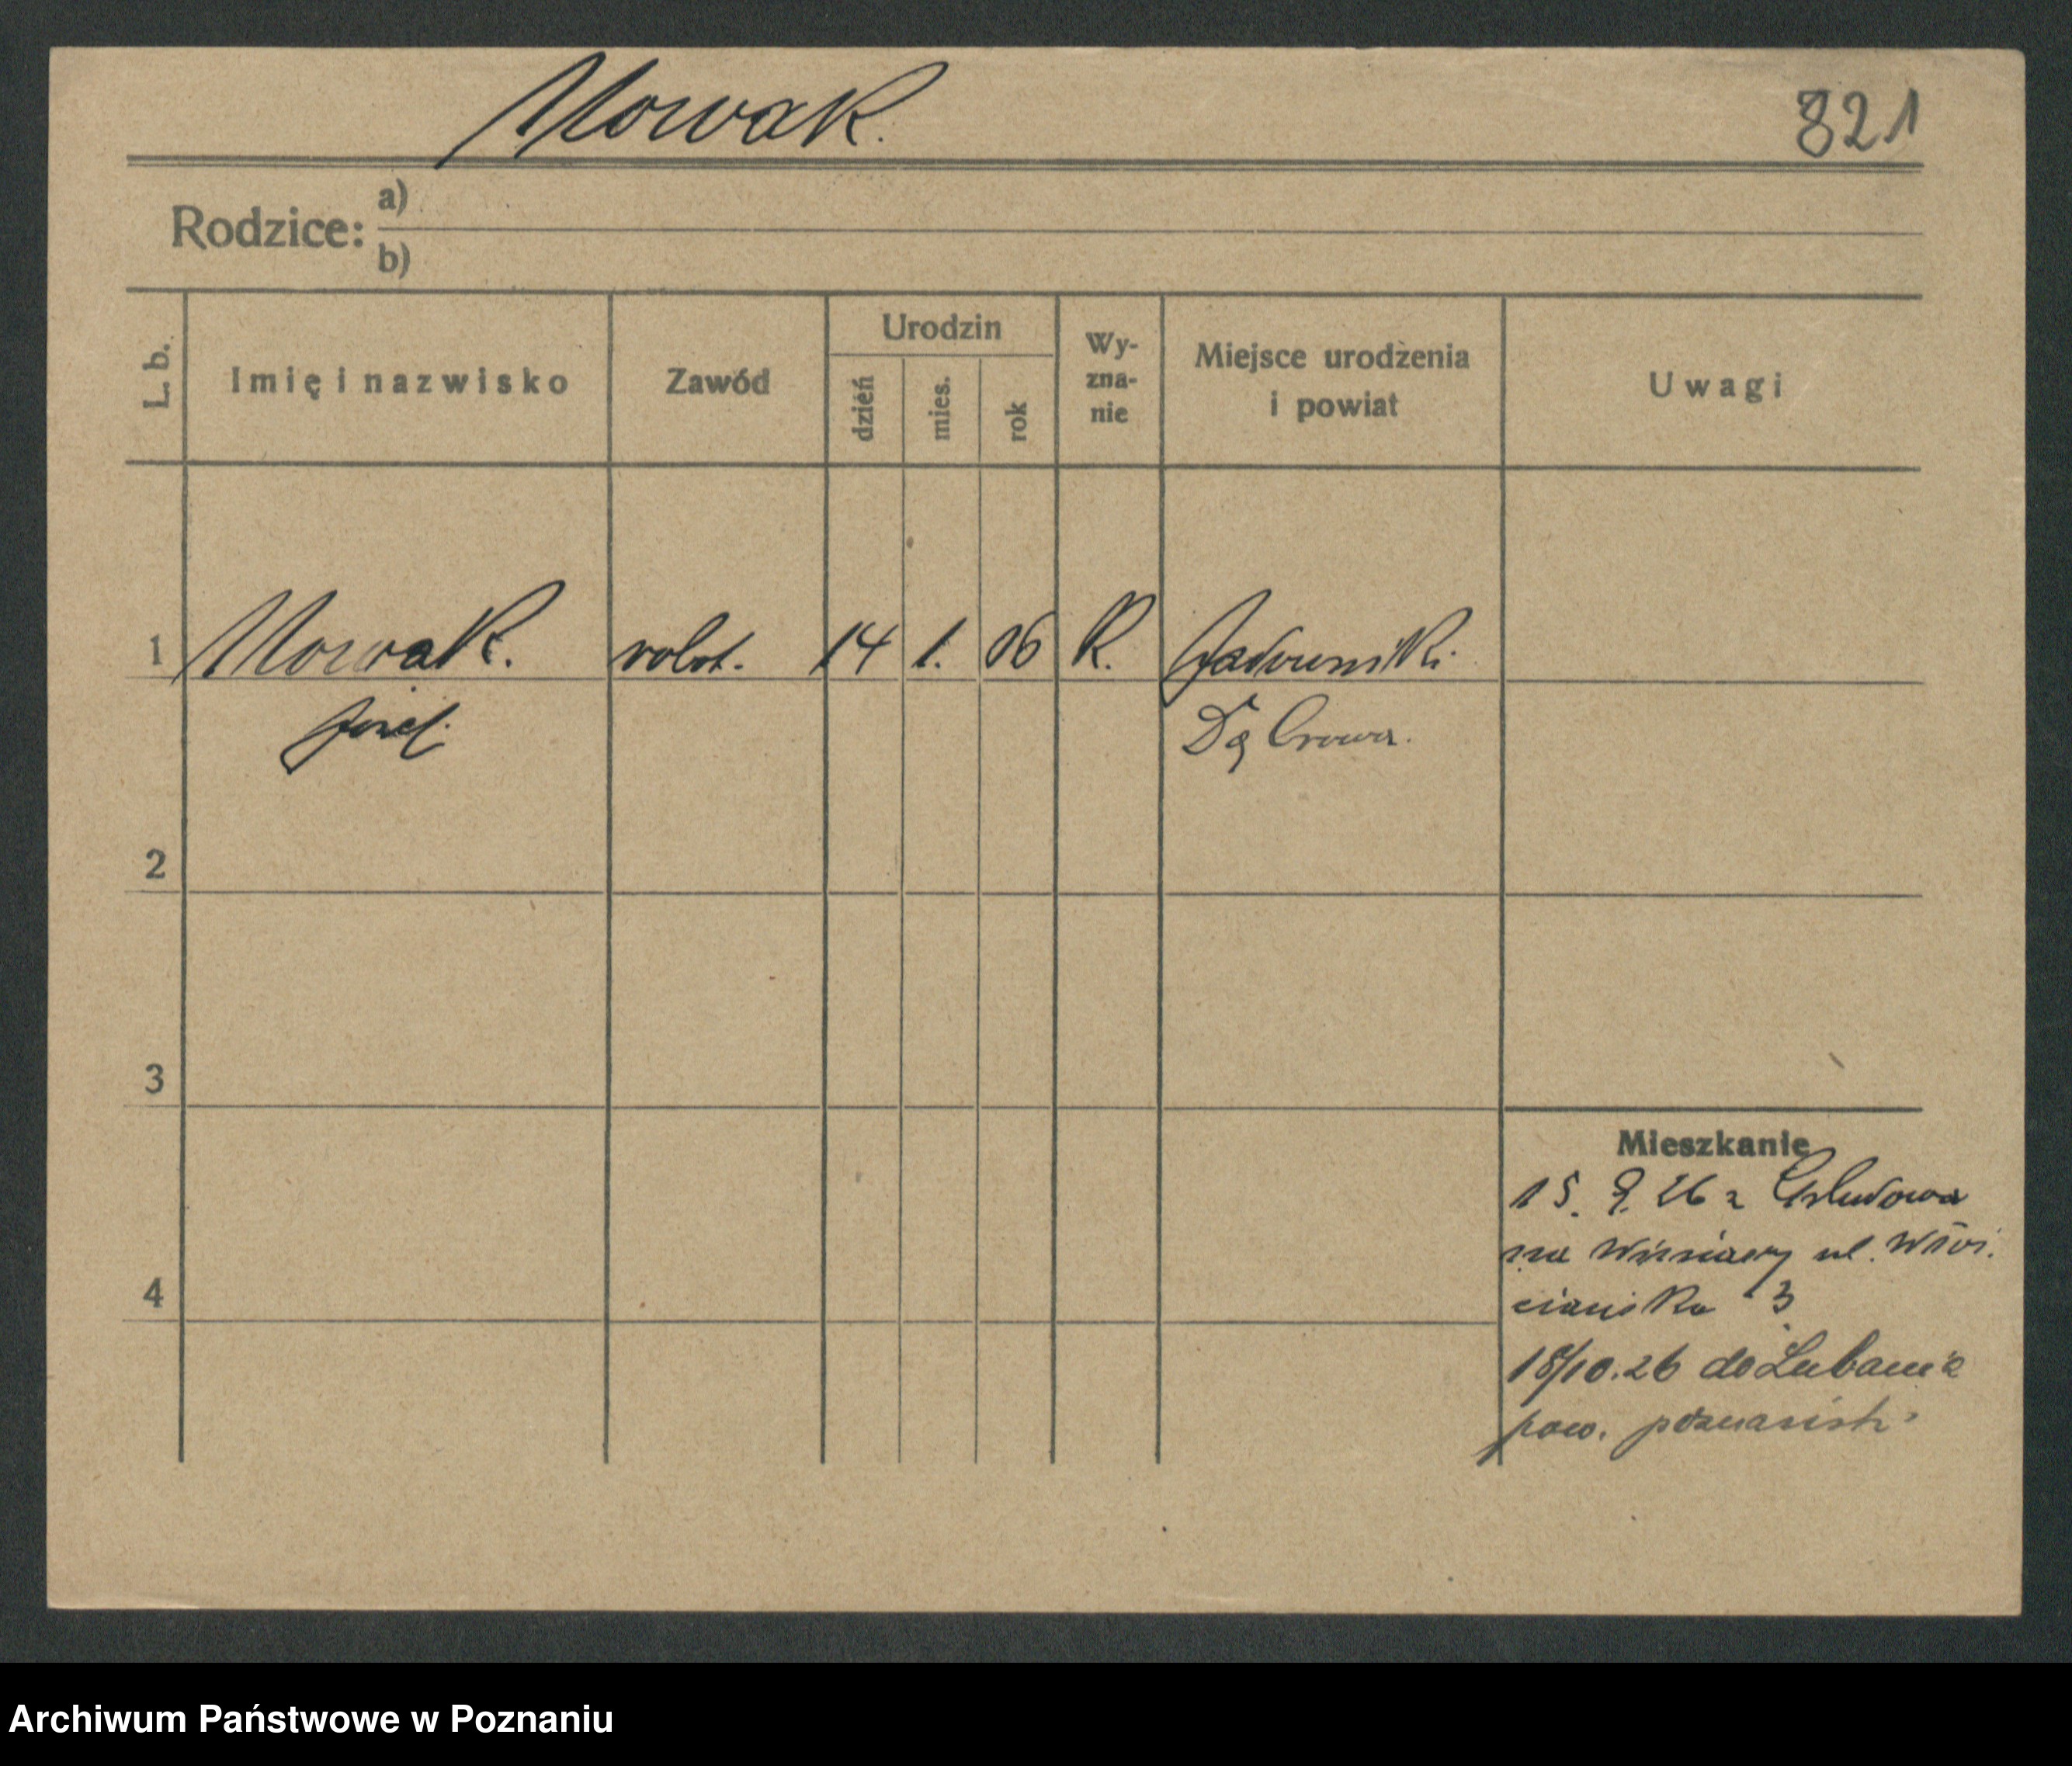 Nowak.
821
Rodzice:
a)
b)
L. b.
Imię i nazwisko
Zawód
Urodzin
dzień
mies.
rok
Wy-
zna-
nie
Miejsce urodzenia
i powiat
Uwagi
1 Nowak. robot. 14 1. 06 R. Jadowniki.
Józef. Dąbrowa.
2
3
4
Mieszkanie
15. 9. 26 z
na Winiary ul. Włoś.
ciańska 3
18/10.26 do Lubania
pow. poznańsk.
Archiwum Państwowe w Poznaniu